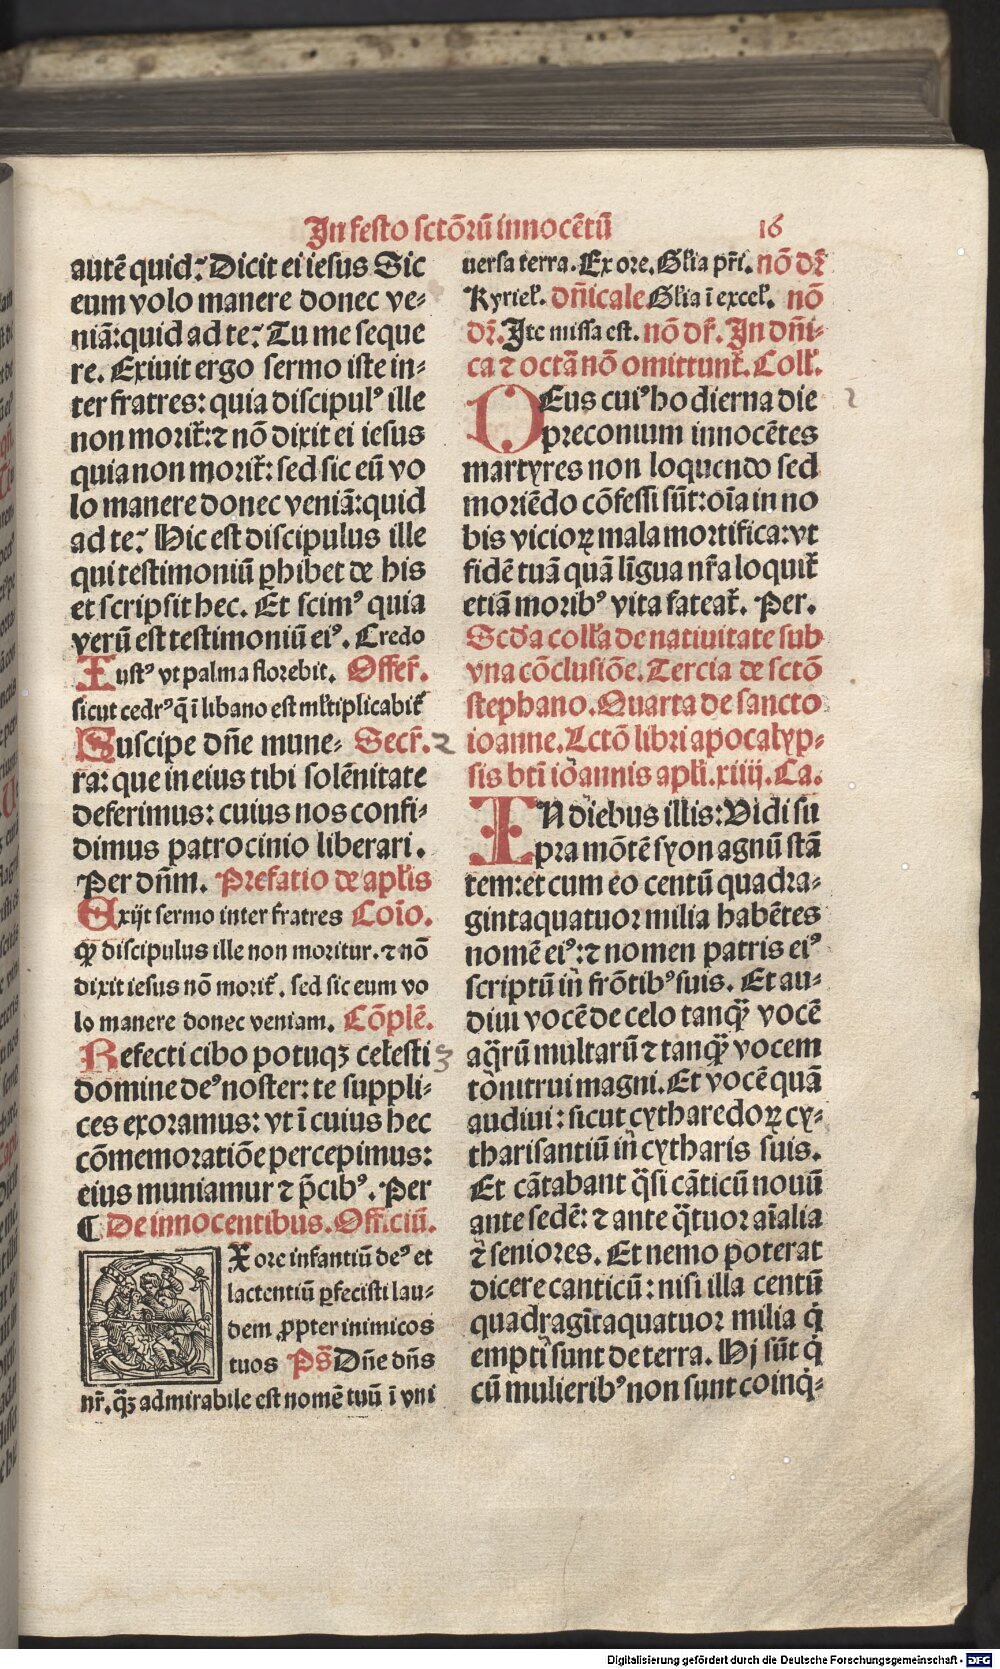 In festo sctōrū innocētū 16
autē quid? Dicit ei iesus Sic
eum volo manere donec ve-
niā: quid ad te? Tu me seque
re. Exiuit ergo sermo iste in-
ter fratres: quia discipulꝰ ille
non morit᷑: ⁊ nō dixit ei iesus
quia non morit᷑: sed sic eū vo
lo manere donec veniā: quid
ad te? Hic est discipulus ille
qui testimoniū ꝑhibet de his
et scripsit hec. Et scimꝰ quia
verū est testimoniū eiꝰ. Credo
Iustꝰ vt palma florebit. Offer᷑.
sicut cedrꝰ q̄ ī libano est ml̓tiplicabit᷑
Suscipe dn̄e mune- Secr᷑. 2
ra: que in eius tibi solēnitate
deferimus: cuius nos confi-
dimus patrocinio liberari.
Per dn̄m. Prefatio de apl̓is
Exijt sermo inter fratres Cōio.
ꝙ discipulus ille non moritur. ⁊ nō
dixit iesus nō morit᷑. sed sic eum vo
lo manere donec veniam. Cōplē.
Refecti cibo potuqꝫ celesti 3
domine deꝰ noster: te suppli-
ces exoramus: vt ī cuius hec
cōmemoratiōe percepimus:
eius muniamur ⁊ p̄cibꝰ. Per
¶ De innocentibus. Officiū.
EX ore infantiū deꝰ et
lactentiū ꝑfecisti lau-
dem ꝓpter inimicos
tuos Ps̄ Dn̄e dn̄s
nr̄. qꝫ̄ admirabile est nomē tuū ī vni
uersa terra. Ex ore. Gl̓ia pr̄i. nō dr᷑
Kyriel̓. dn̄icale Gl̓ia ī excel̓. nō
dr᷑. Ite missa est. nō dr᷑. In dn̄i-
ca ⁊ octā nō omittunt᷑. Coll̓.
DEus cuiꝰ hodierna die 2
preconium innocētes
martyres non loquendo sed
moriēdo cōfessi sūt: oīa in no
bis vicioꝝ mala mortifica: vt
fidē tuā quā līgua nr̄a loquit᷑
etiā moribꝰ vita fateat᷑. Per.
Scd̓a coll̓a de natiuitate sub
vna cōclusiōe. Tercia de sctō
stephano. Quarta de sancto
ioanne. Lctō libri apocalyp-
sis bt̄i iōannis apl̓i. xiiij. Ca.
IN diebus illis: Vidi su
pra mōtē syon agnū stā
tem: et cum eo centū quadra-
gintaquatuor milia habētes
nomē eiꝰ: ⁊ nomen patris eiꝰ
scriptū in frōtibꝰ suis. Et au-
diui vocē de celo tanqꝫ̄ vocē
aq̄rū multarū ⁊ tanqꝫ̄ vocem
tonitrui magni. Et vocē quā
audiui: sicut cytharedoꝝ cy-
tharisantiū in cytharis suis.
Et cātabant q̄si cāticū nouū
ante sedē: ⁊ ante q̄tuor aīalia
⁊ seniores. Et nemo poterat
dicere canticū: nisi illa centū
quadragītaquatuor milia q̇
empti sunt de terra. Hj sūt q̇
cū mulieribꝰ non sunt coinq̇-
Digitalisierung gefördert durch die Deutsche Forschungsgemeinschaft - DFG